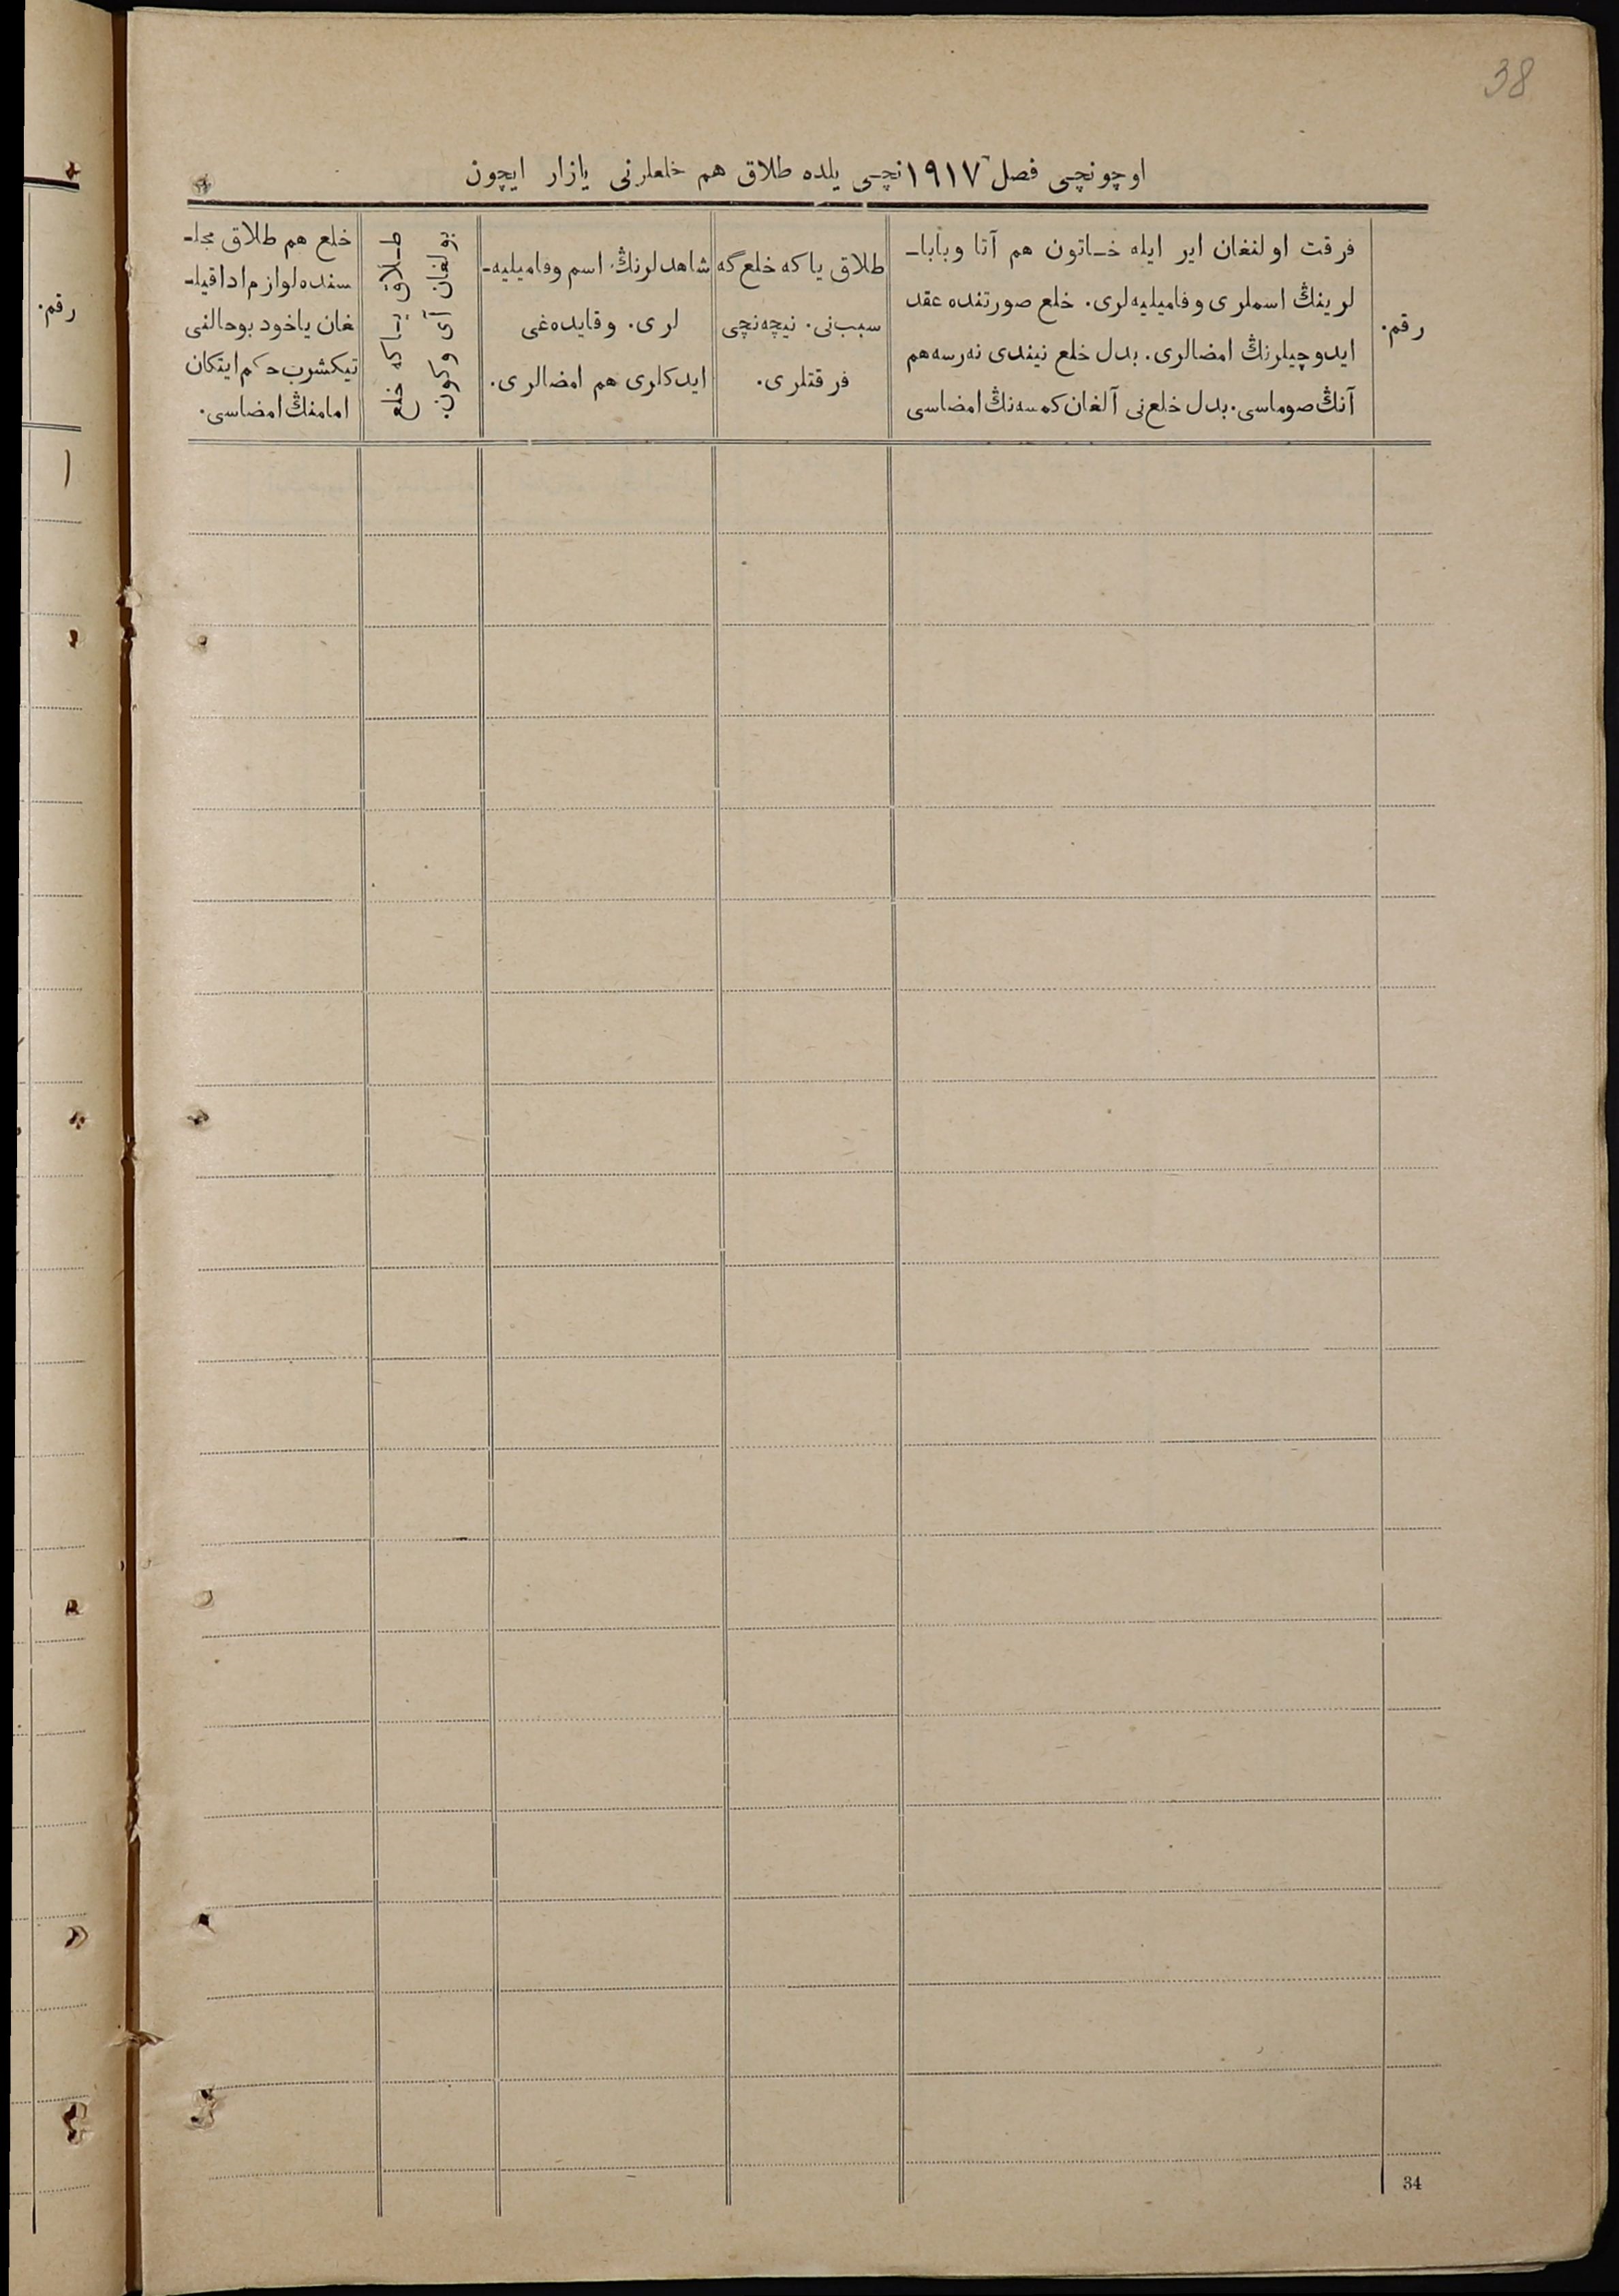 38
اوچونچی فصل ١٩١٧ نچی يلده طلاق هم خلعلرنی يازار ايچون
رقم.
فرقت اولنغان اير ايله خـاتون هم آتا وبابا-
لرينڭ اسملری وفاميليه‌لری. خلع صورتنده عقد
ايدوچيلرنڭ امضالری. بدل خلع نيندی نه‌رسه هم
آنڭ صوماسی. بدل خلع‌نی آلغان كمسه‌نڭ امضاسی
طلاق ياكه خلع‌گه
سبب‌نی. نيچه‌نچی
فرقتلری.
شاهدلرنڭ اسم وفاميليه-
لری. وقايده‌غی
ايدكلری هم امضالری.
طـلاق يـاكه خلع
بولغان آی وكون.
خلع هم طلاق مجلـ
سنده لوازم ادا قيلـ
غان ياخود بوحالنی
تيكشرب حكم ايتكان
امامنڭ امضاسی.
رقم.
١
34